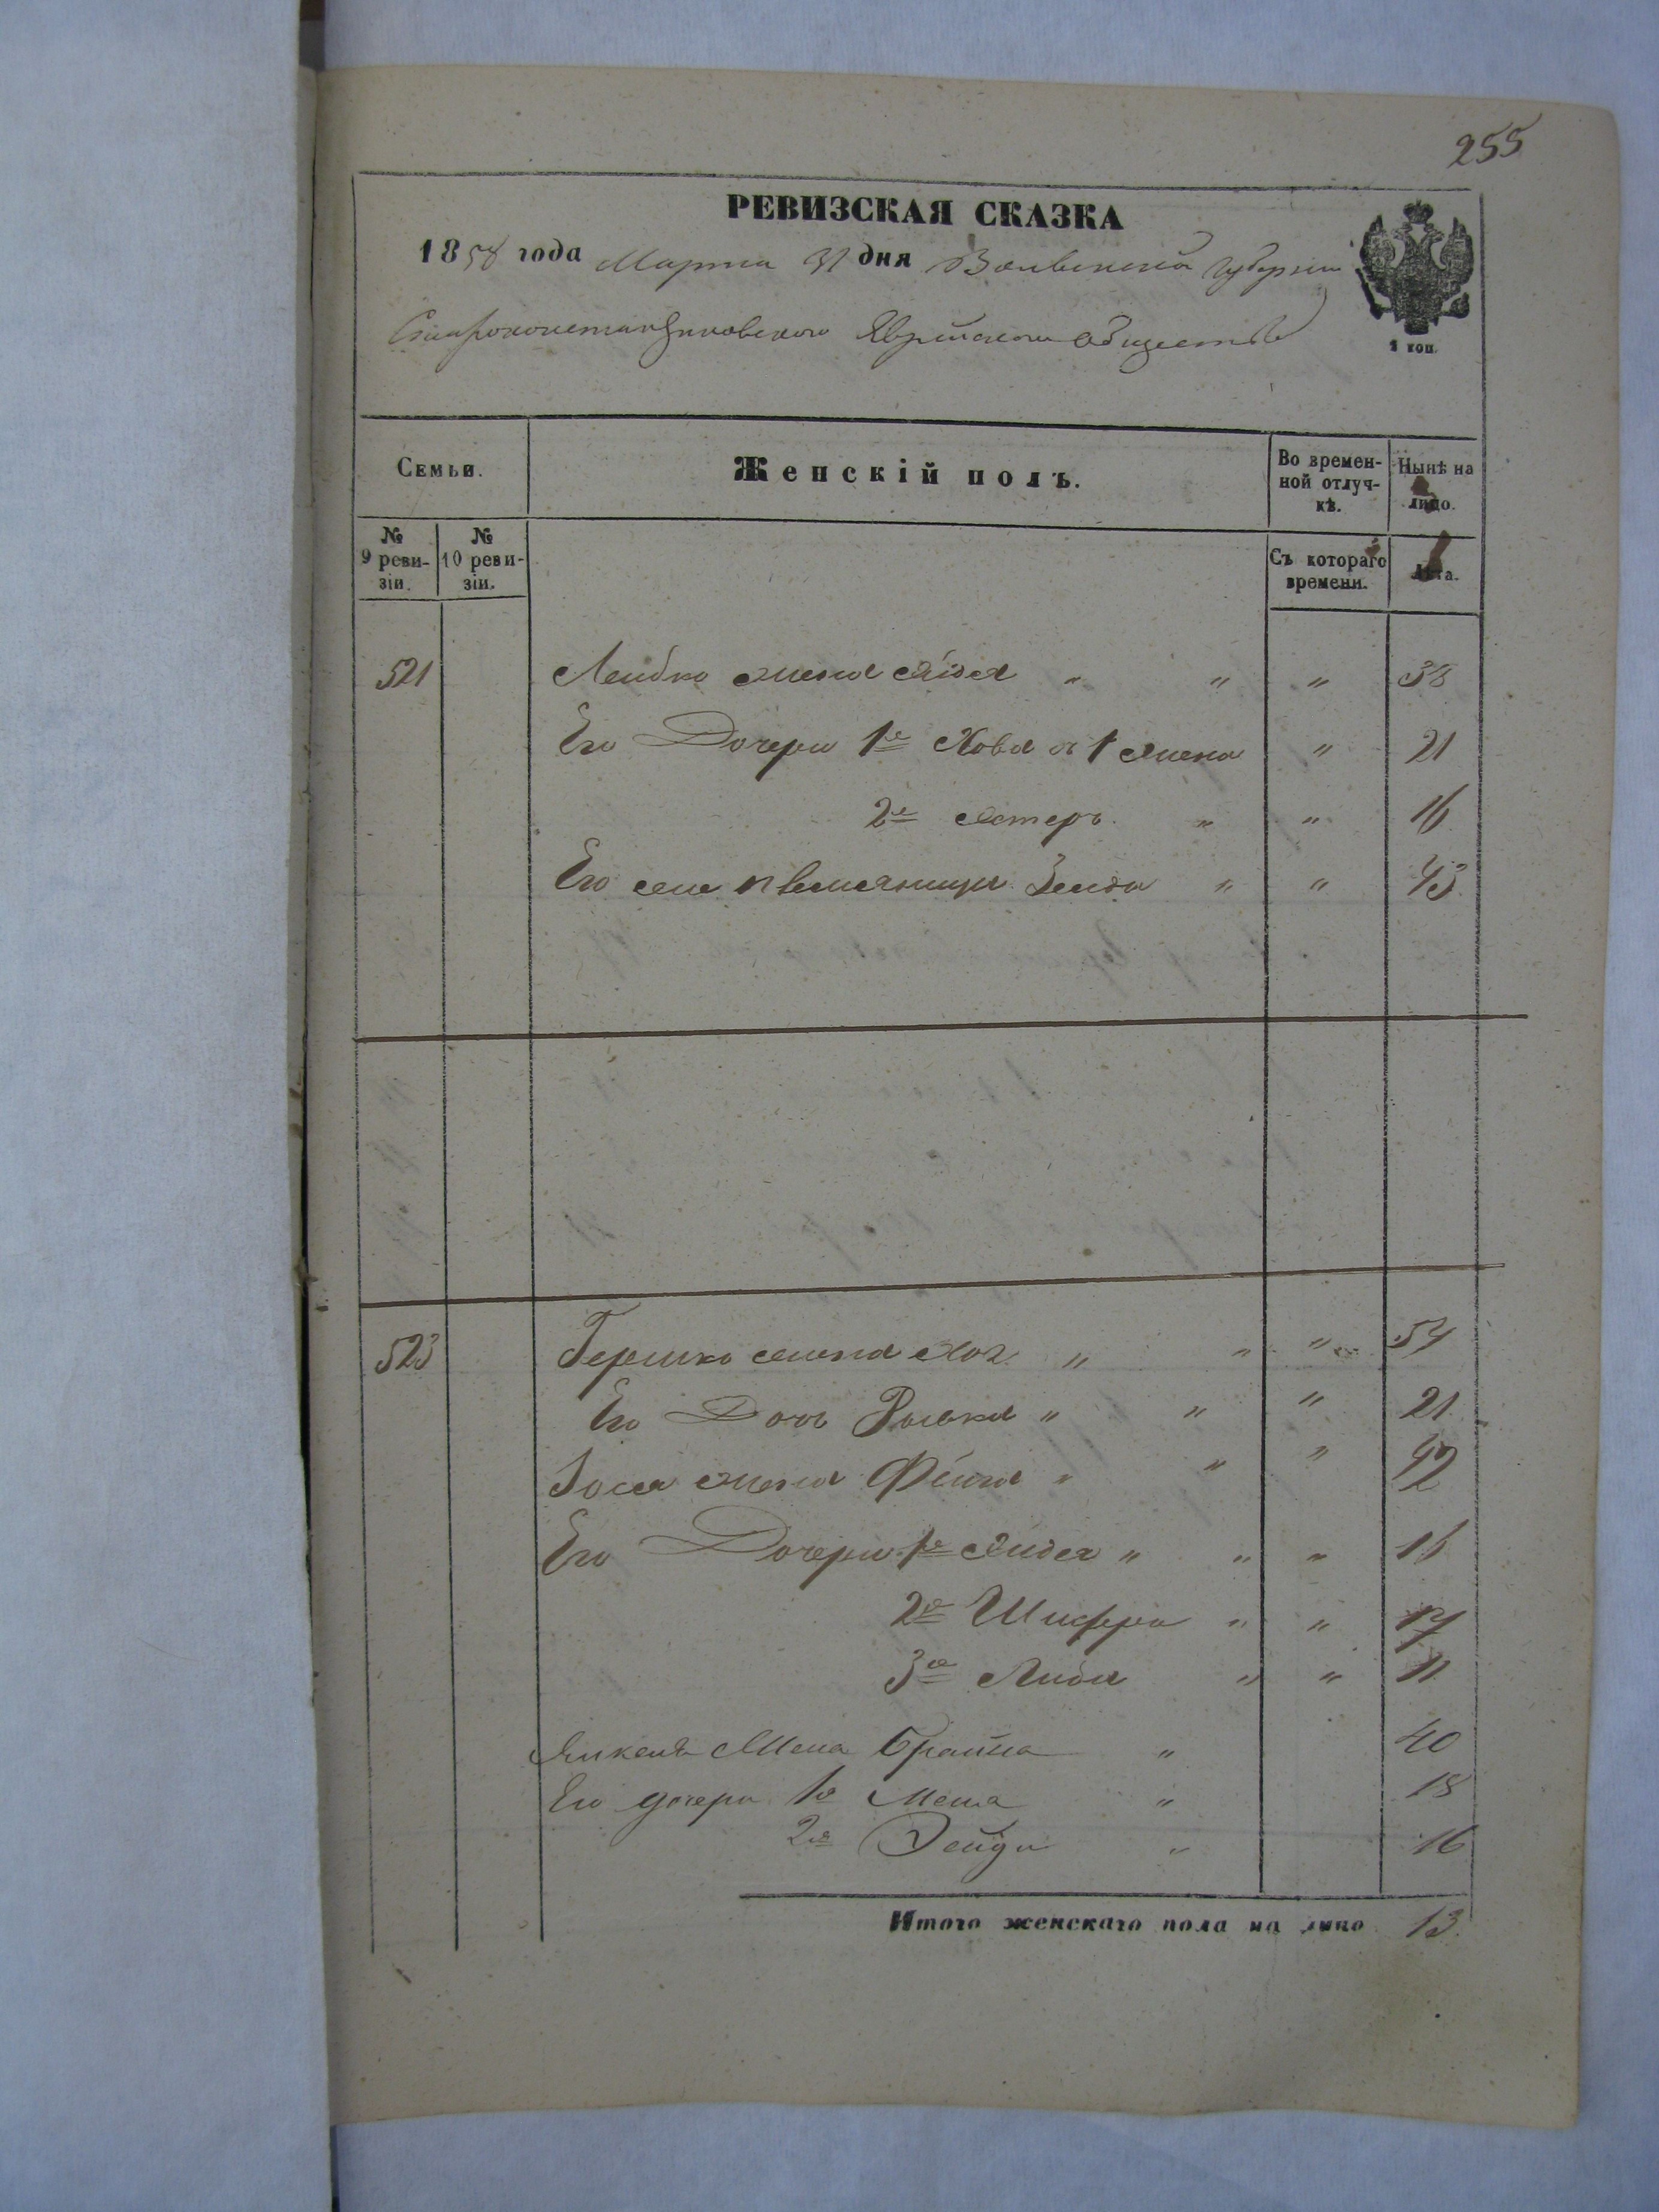 255
РЕВИЗСКАЯ СКАЗКА
1858 года Марта 31 дня Волынской губернии
Староконстантиновского Еврейского общества
1 коп.
Семьи.
Женскій полъ.
Во времен-
ной отлуч-
кѣ.
Нынѣ на
лицо.
№
9 реви-
зіи.
№
10 реви-
зіи.
Съ котораго
времени.
Лѣта.
521 Лейбко жена " " " 38
Его Дочери 1я Хова от 1 жена " 21
2я Естеръ " " 16
Его " " 43
523 Гершко жена " " " 54
Его Дочь " " " 21
Іося жена Фейга " " " 42
Его Дочери 1я " " " 16
2я Шифра " " 17
3я Либа " " 11
Янкеля Жена Брайна " 40
Его дочери 1я " 18
2я Рейзи " 16
Итого женскаго пола на лицо 13.